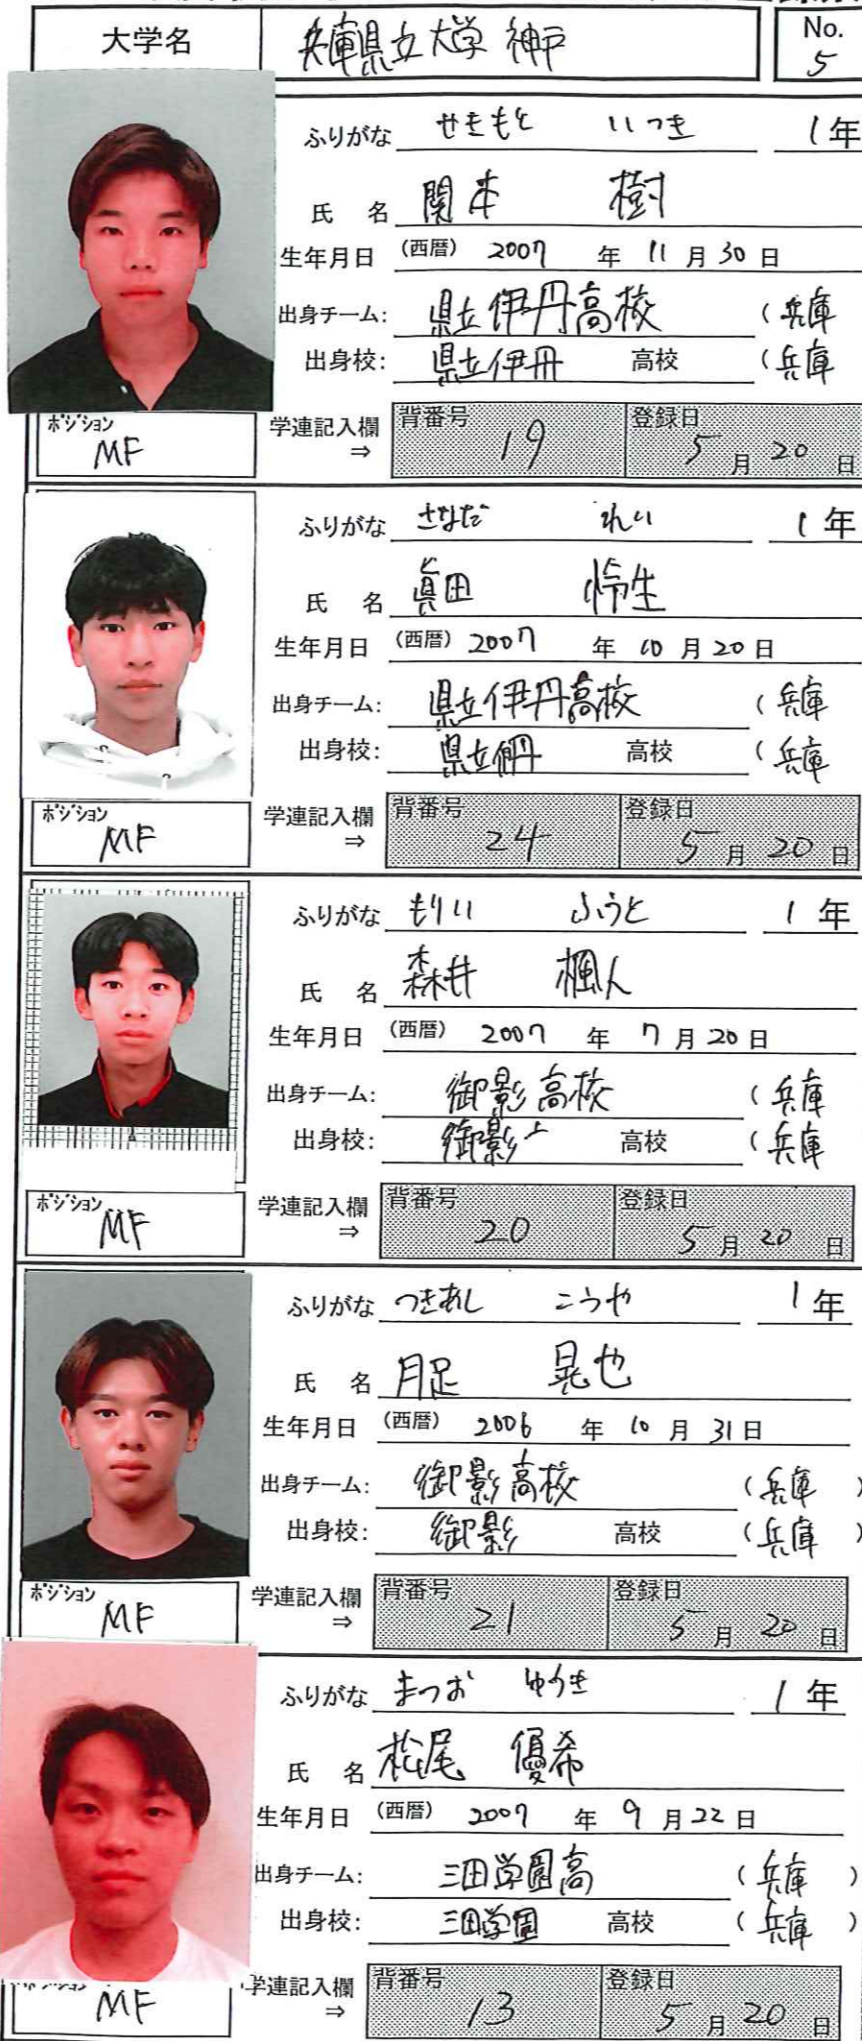 大学名 兵庫県立大学 神戸 No. 5
ふりがな せきもと いつき 1年
氏 名 関本 樹
生年月日 (西暦) 2007 年 11 月 30 日
出身チーム: 県立伊丹高校 (兵庫
出身校: 県立伊丹 高校 (兵庫
ポジション MF 学連記入欄 ⇒ 背番号 19 登録日 5 月 20 日
ふりがな さなだ れい 1年
氏 名 眞田 怜生
生年月日 (西暦) 2007 年 10 月 20 日
出身チーム: 県立伊丹高校 (兵庫
出身校: 県立伊丹 高校 (兵庫
ポジション MF 学連記入欄 ⇒ 背番号 24 登録日 5 月 20 日
ふりがな もりい ふうと 1年
氏 名 森井 楓人
生年月日 (西暦) 2007 年 7 月 20 日
出身チーム: 御影高校 (兵庫
出身校: 御影 高校 (兵庫
ポジション MF 学連記入欄 ⇒ 背番号 20 登録日 5 月 20 日
ふりがな つきあし こうや 1年
氏 名 月足 晃也
生年月日 (西暦) 2006 年 10 月 31 日
出身チーム: 御影高校 (兵庫 )
出身校: 御影 高校 (兵庫 )
ポジション MF 学連記入欄 ⇒ 背番号 21 登録日 5 月 20 日
ふりがな まつお ゆうき 1年
氏 名 松尾 優希
生年月日 (西暦) 2007 年 9 月 22 日
出身チーム: 三田学園高 (兵庫 )
出身校: 三田学園 高校 (兵庫 )
MF 学連記入欄 ⇒ 背番号 13 登録日 5 月 20 日